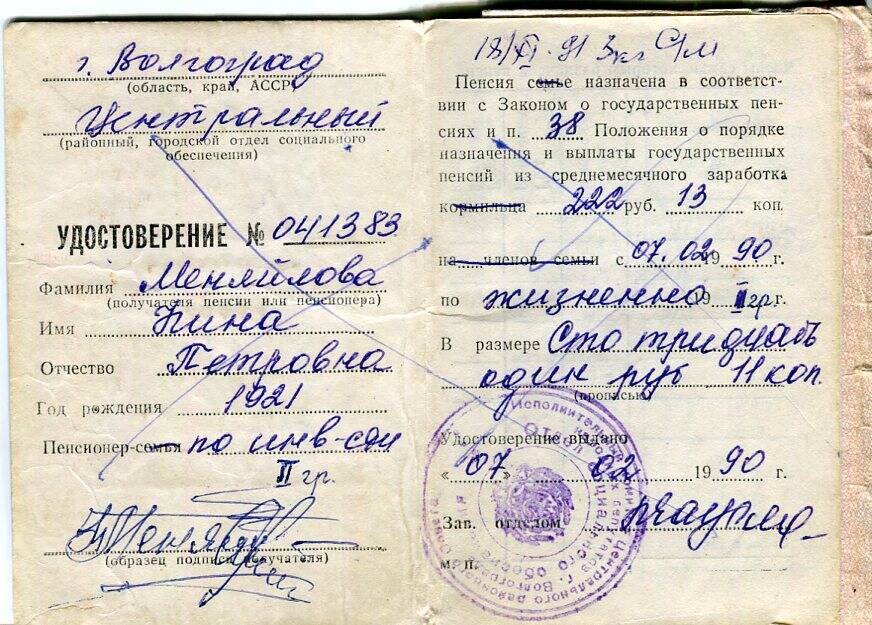 г. Волгоград
(область, край, АССР)
Центральный
(районный, городской отдел социального
обеспечения)
УДОСТОВЕРЕНИЕ № 041383
Фамилия Меняйлова
(получателя пенсии или пенсионера)
Имя Нина
Отчество Петровна
Год рождения 1921
Пенсионер-семья по инв-сти
II гр.
(образец подписи получателя)
18/XI-91
Пенсия семье назначена в соответст-
вии с Законом о государственных пен-
сиях и п. 38 Положения о порядке
назначения и выплаты государственных
пенсий из среднемесячного заработка
кормильца 222 руб. 13 коп.
на членов семьи с 07.02 1990 г.
по жизненно 19 II гр. г.
В размере Сто тридцать
один руб 11 коп.
(прописью)
Удостоверение выдано
«07» 02 1990 г.
Зав. отделом
М. П.